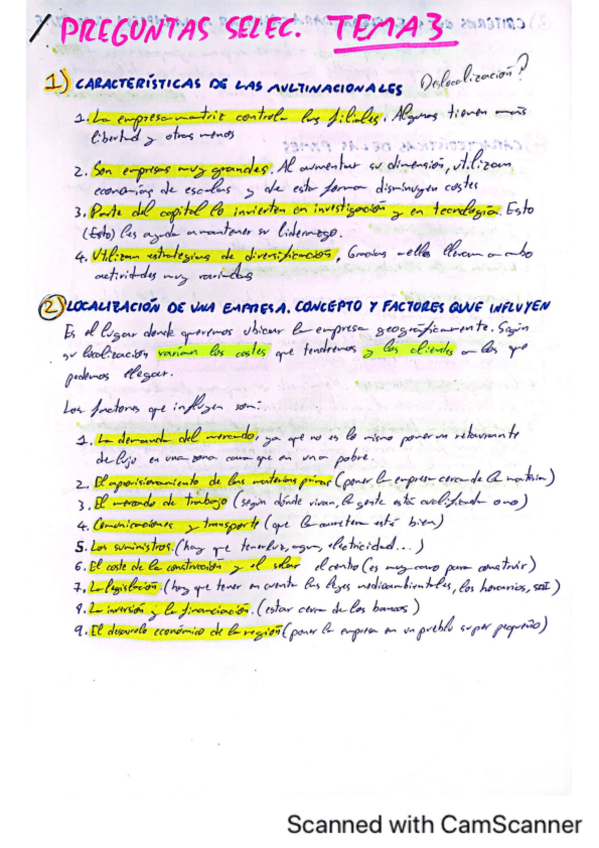 / PREGUNTAS SELEC. TEMA 3
1) CARACTERÍSTICAS DE LAS MULTINACIONALES Deslocalización?
1. La empresa matriz controla las filiales. Algunas tienen más
libertad y otras menos
2. Son empresas muy grandes. Al aumentar su dimensión, utilizan
economías de escalas y de esta forma disminuyen costes
3. Parte del capital lo invierten en investigación y en tecnología. Esto
(Esto) les ayuda a mantener su liderazgo.
4. Utilizan estrategias de diversificación, Gracias a ellas llevan a cabo
actividades muy variadas
2) LOCALIZACIÓN DE UNA EMPRESA. CONCEPTO Y FACTORES QUE INFLUYEN
Es el lugar donde queremos ubicar la empresa geográficamente. Según
su localización varían los costes que tendremos y los clientes a los que
podemos llegar.
Los factores que influyen son:
1. La demanda del mercado, ya que no es lo mismo poner un restaurante
de lujo en una zona cara que en una pobre.
2. El aprovisionamiento de las materias primas (poner la empresa cerca de la materia)
3. El mercado de trabajo (según dónde vivan, la gente está cualificada o no)
4. Comunicaciones y transporte (que la carretera esté bien)
5. Los suministros. (hay que tener luz, agua, electricidad...)
6. El coste de la construcción y el solar el centro (es muy caro para construir)
7. La legislación. (hay que tener en cuenta las leyes medioambientales, los horarios,
8. La inversión y la financiación. (estar cerca de los bancos)
9. El desarrollo económico de la región (poner la empresa en un pueblo super pequeño)
Scanned with CamScanner